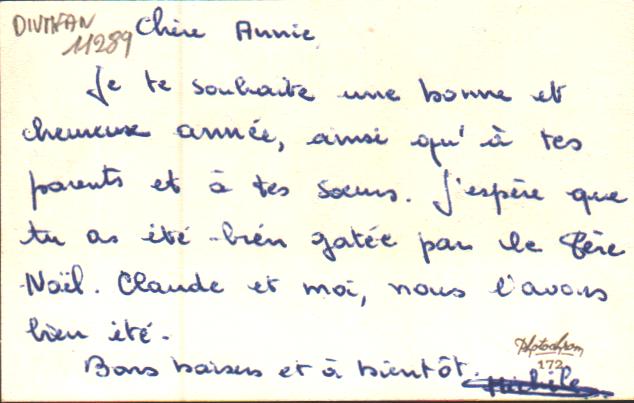 DIVTXAN
11289
Chère Annie,
Je te souhaite une bonne et
heureuse année, ainsi qu'à tes
parents et à tes soeurs. J'espère que
tu as été bien gatée par le Père
Noël. Claude et moi, nous l'avons
bien été.
Bons baisers et à bientôt.
Photochrom
172
Michèle.